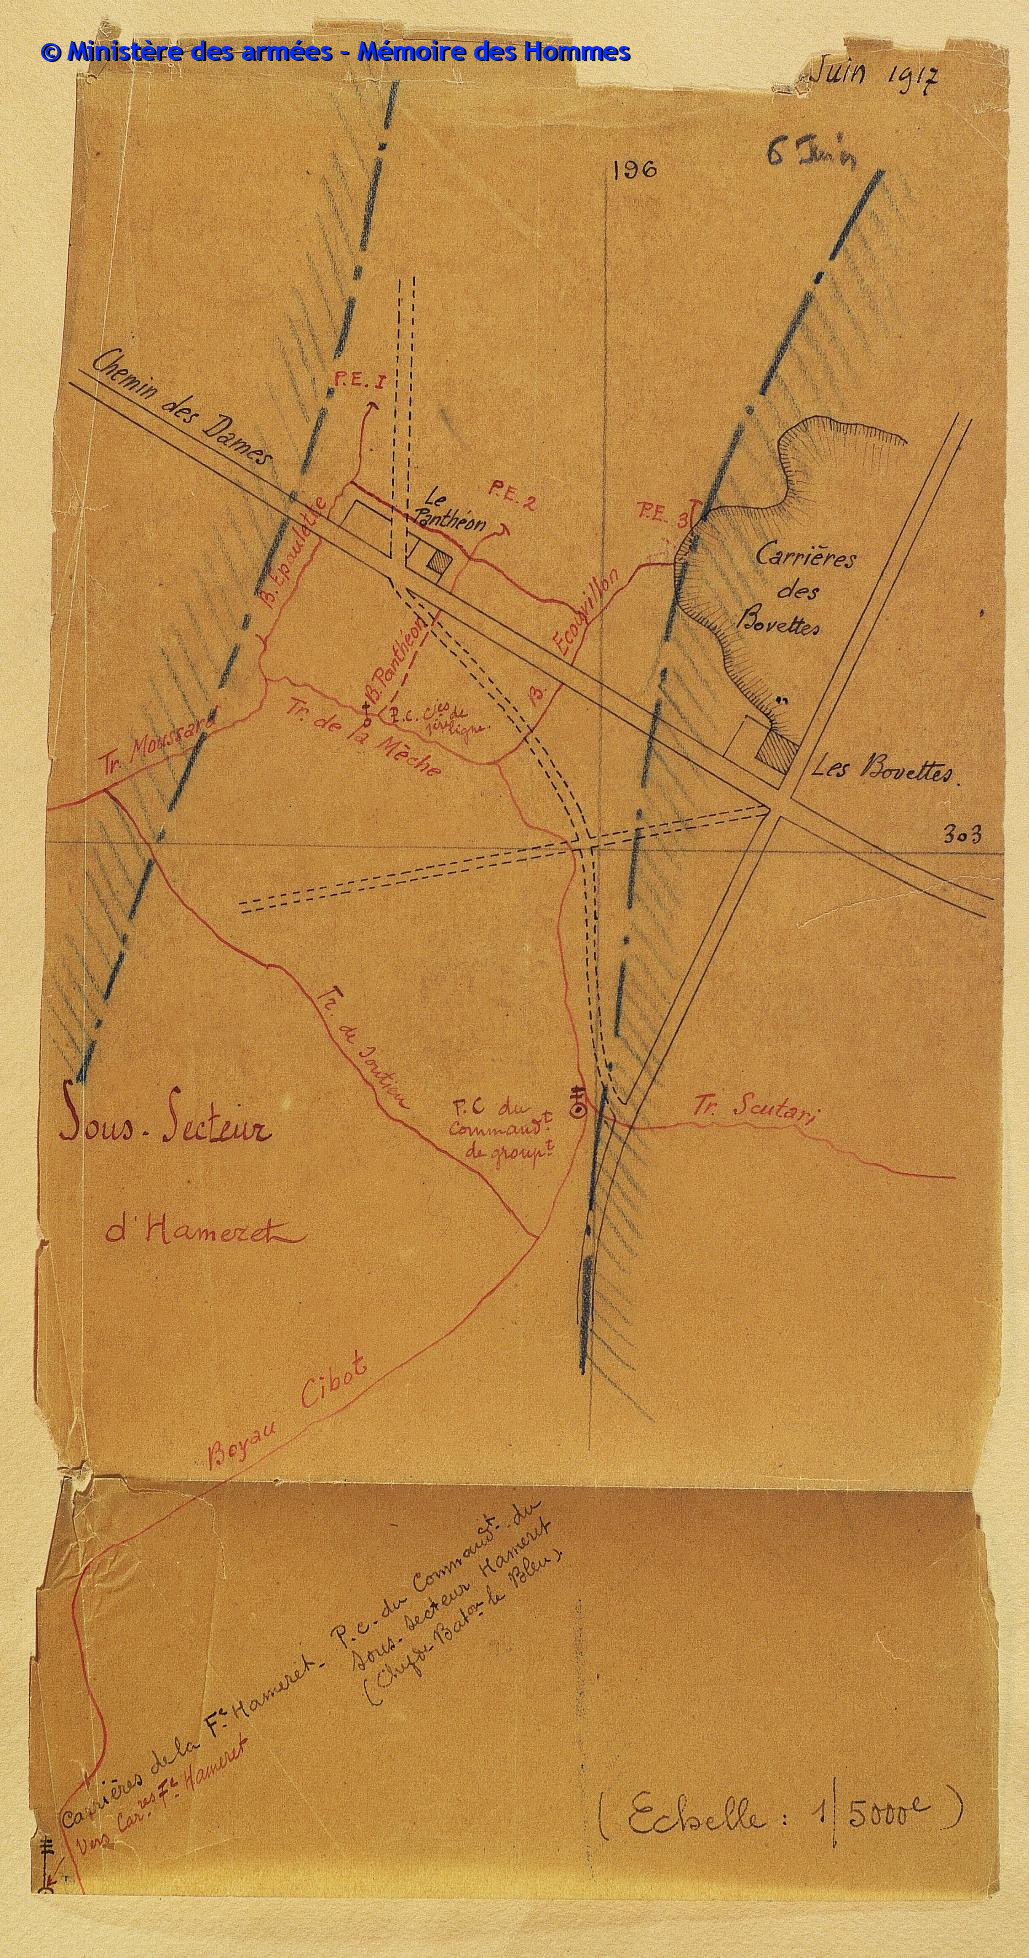 © Ministère des armées - Mémoire des Hommes
Juin 1917
6 Juin
196
Chemin des Dames
P.E. 1
P.E. 2
Le
Panthéon
P.E. 3
Carrières
des
Bovettes
B. Epaulette
B. Ecouvillon
B. Panthéon
P.C. Cies de
1ère ligne
Tr. de la Mèche
Tr. Moussard
Les Bovettes.
303
Tr. de Soutien
P.C du
Commandt
de groupt
Tr. Scutari
Sous-Secteur
d'Hameret
Boyau Cibot
Carrières de la Fe Hameret - P.C. du Commandt du
Sous-Secteur Hameret
(Chef de Baton le Bleu)
Vers Carres Fe Hameret
(Echelle : 1/5000e)